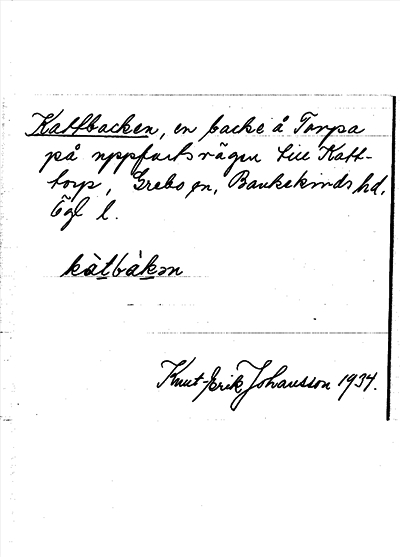 Kattbacken, en backe å Torpa
på uppfartsvägen till Katt-
torp, Grebo sn, Bankekinds hd,
Ögl l.
kàtbàkən
Knut-Erik Johansson 1934.